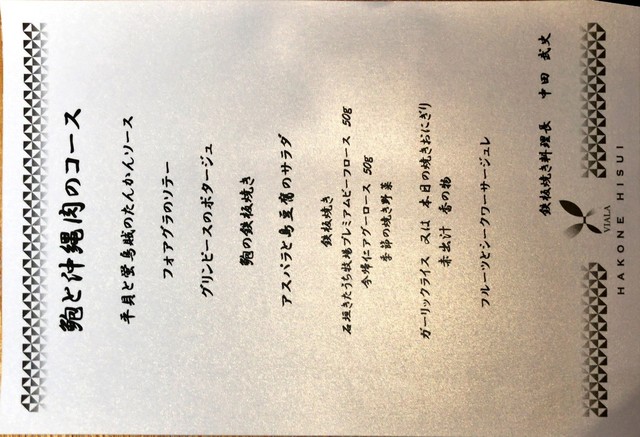 鮑と沖縄肉のコース
平貝と蛍烏賊のたんかんソース
フォアグラのソテー
グリンピースのポタージュ
鮑の鉄板焼き
アスパラと島豆腐のサラダ
鉄板焼き
石垣きたうち牧場プレミアムビーフロース 50g
今帰仁アグーロース 50g
季節の焼き野菜
ガーリックライス 又は 本日の焼きおにぎり
赤出汁 香の物
フルーツとシークワーサージュレ
鉄板焼き料理長 中田 武史
VIALA
HAKONE HISUI